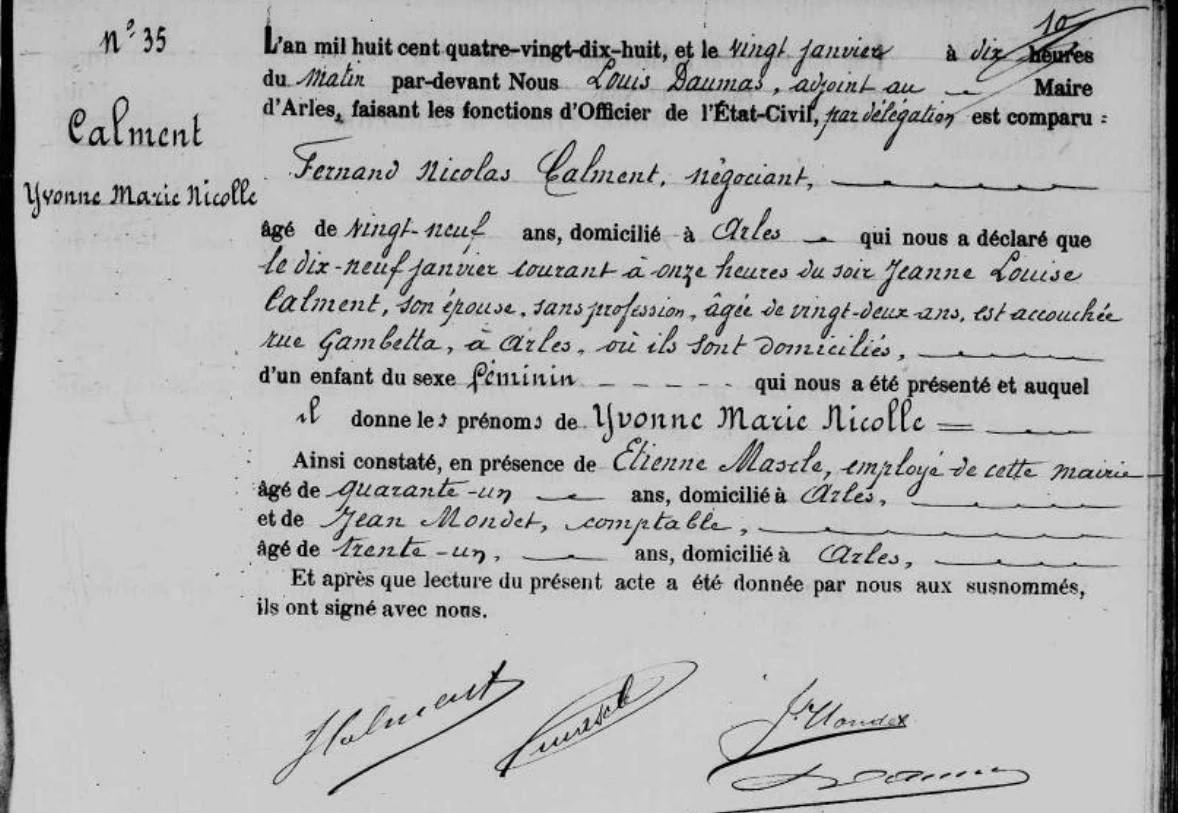 n° 35
Calment
Yvonne Marie Nicolle
10
L'an mil huit cent quatre-vingt-dix-huit, et le vingt janvier à dix heures
du matin par-devant Nous Louis Daumas, adjoint au Maire
d'Arles, faisant les fonctions d'Officier de l'État-Civil, par délégation est comparu :
Fernand Nicolas Calment, négociant,
âgé de vingt-neuf ans, domicilié à Arles qui nous a déclaré que
le dix-neuf janvier courant à onze heures du soir Jeanne Louise
Calment, son épouse, sans profession, âgée de vingt-deux ans, est accouchée
rue Gambetta, à Arles, où ils sont domiciliés,
d'un enfant du sexe féminin qui nous a été présenté et auquel
il donne les prénoms de Yvonne Marie Nicolle
Ainsi constaté, en présence de Etienne Mascle, employé de cette mairie
âgé de quarante-un ans, domicilié à Arles,
et de Jean Mondet, comptable,
âgé de trente-un, ans, domicilié à Arles,
Et après que lecture du présent acte a été donnée par nous aux susnommés,
ils ont signé avec nous.
fCalment
EMascle
J. Mondet
L Daumas